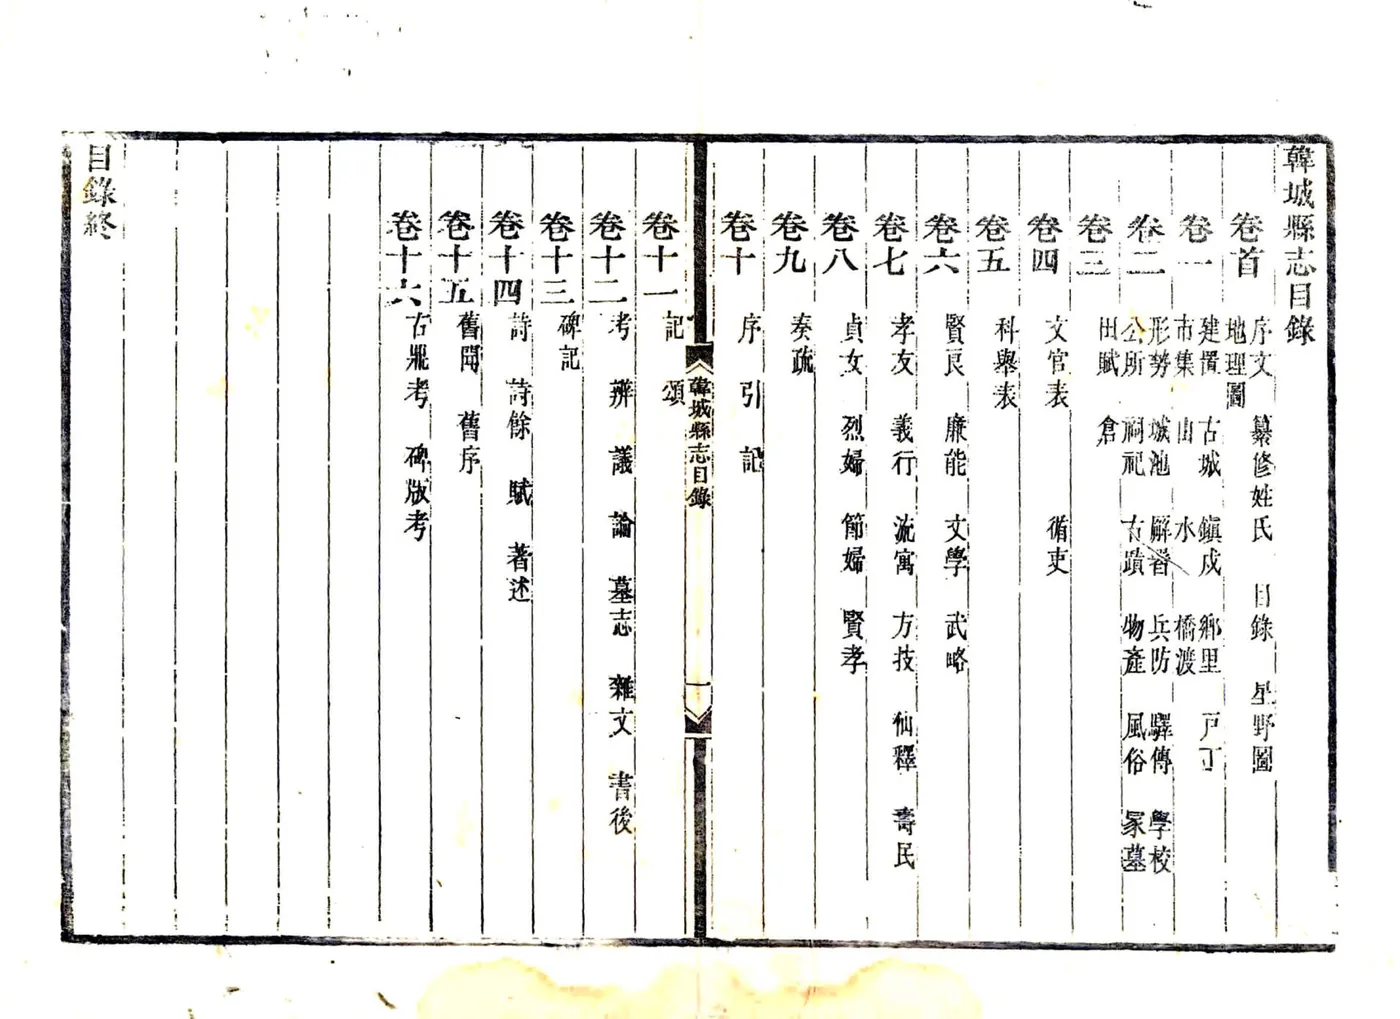 韓城縣志目錄
卷首
序文 纂修姓氏 目錄 星野圖
地理圖
卷一
建置 古城 鎭戍 鄉里 戸丁
市集 山 水 橋渡
卷二
形勢 城池 廨署 兵防 驛傳 學校
公所 祠祀 古蹟 物產 風俗 冢墓
卷三
田賦 倉
卷四
文官表 循吏
卷五
科舉表
卷六
賢良 廉能 文學 武略
卷七
孝友 義行 流寓 方技 仙釋 壽民
卷八
貞女 烈婦 節婦 賢孝
卷九
奏疏
卷十
序 引 記
韓城縣志目錄
一
卷十一
記 頌
卷十二
考 辨 議 論 墓志 雜文 書後
卷十三
碑記
卷十四
詩 詩餘 賦 著述
卷十五
舊聞 舊序
卷十六
古鼎考 碑版考
目錄終